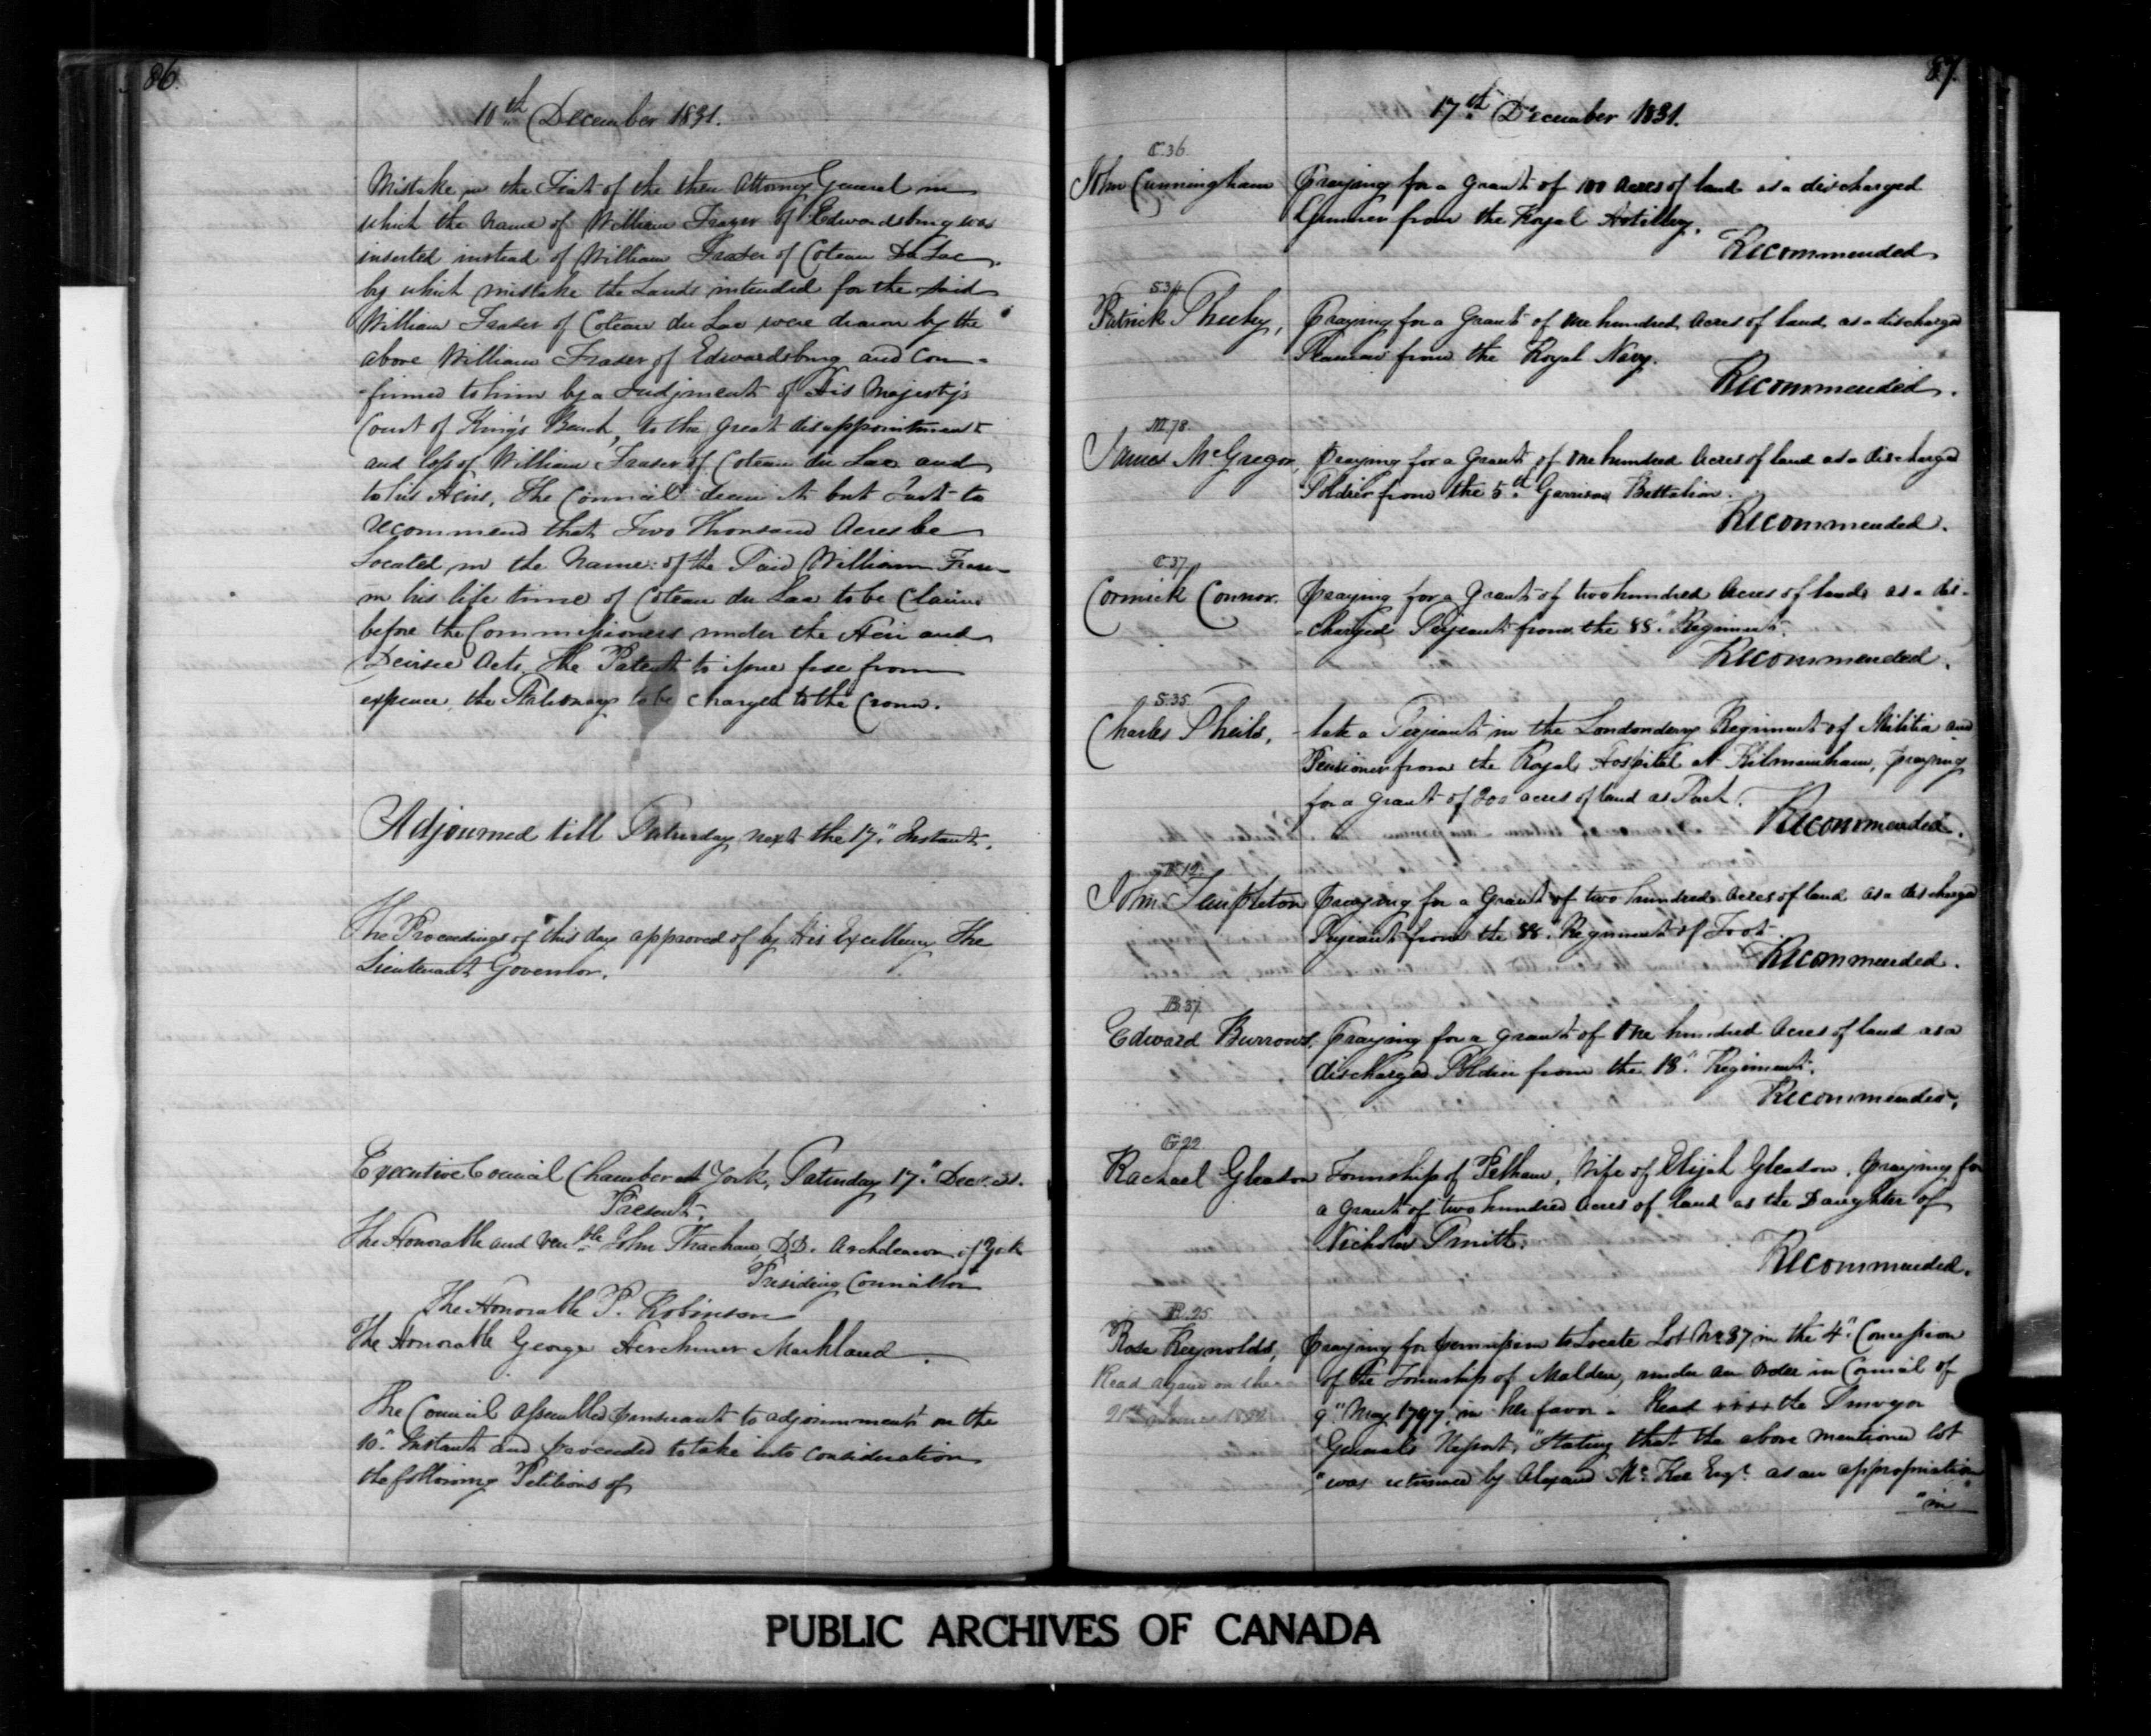 86.
10th December 1831.
Mistake, in the Fiat of the then Attorney General in
which the name of William Frazer of Edwardsburg was
inserted instead of William Fraser of Coteau Du Lac,
by which mistake the Lands intended for the said
William Fraser of Coteau du Lac were drawn by the
above William Fraser of Edwardsburg and Con-
-firmed to him by a Judgment of His Majesty's
Court of King's Bench, to the great disappointment
and loss of William Fraser of Coteau du Lac and
to his Heirs. The Council deem it but Just to
recommend that Two Thousand Acres be
Located in the name of the Said William Fraser
in his life time of Coteau du Lac to be Claimed
before the Commissioners under the Heir and
Devisee Acts. The Patent to issue free from
expence, the Stationary to be charged to the Crown.
Adjourned till Saturday next the 17" Instant.
The Proceedings of this day approved of by His Excellency The
Lieutenant Governor.
Executive Council Chamber at York, Saturday 17" Decr. 31.
Present.
The Honorable and Venble John Strachan, D.D. Archdeacon of York
Presiding Councillor
The Honorable P. Robinson
The Honorable George Herchmer Markland.
The Council assembled pursuant to adjournment on the
10" Instant and proceeded to take into consideration
the following Petitions of
87.
17th December 1831.
C.36.
John Cunningham Praying for a Grant of 100 Acres of land as a discharged
Gunner from the Royal Artillery.
Recommended
S.34
Patrick Sheehy, Praying for a Grant of One hundred Acres of land as a discharged
Seaman from the Royal Navy.
Recommended.
M.78.
James McGregor, Praying for a Grant of One hundred Acres of land as a discharged
Soldier from the 5th Garrison Battalion.
Recommended.
C.37
Cormick Connor. Praying for a Grant of two hundred Acres of land as a dis-
-charged Serjeant from the 88" Regiment.
Recommended.
S.35.
Charles Sheils, - late a Serjeant in the Londonderry Regiment of Militia and
Pensioner from the Royal Hospital at Kilmainham, praying
for a grant of 200 acres of land as Such.
Recommended.
T.12.
John Templeton Praying for a Grant of two hundred Acres of land as a discharged
Serjeant from the 88" Regiment of Foot.
Recommended.
B.37
Edward Burrows. Praying for a grant of One hundred Acres of land as a
discharged Soldier from the 18" Regiment.
Recommended.
G.22
Rachael Gleason Township of Pelham, Wife of Elijah Gleason, Praying for
a Grant of two hundred Acres of land as the Daughter of
Nicholas Smith.
Recommended.
R.25
Rose Reynolds, Praying for permission to Locate Lot No 37 in the 4" Concession
Read again on the
of the Township of Malden, under an Order in Council of
9" May 1797, in her favor. Read the Surveyor
General's Report, "Stating that the above mentioned lot
"was returned by Alexand McKee Esqr. as an appropriation
"in
PUBLIC ARCHIVES OF CANADA